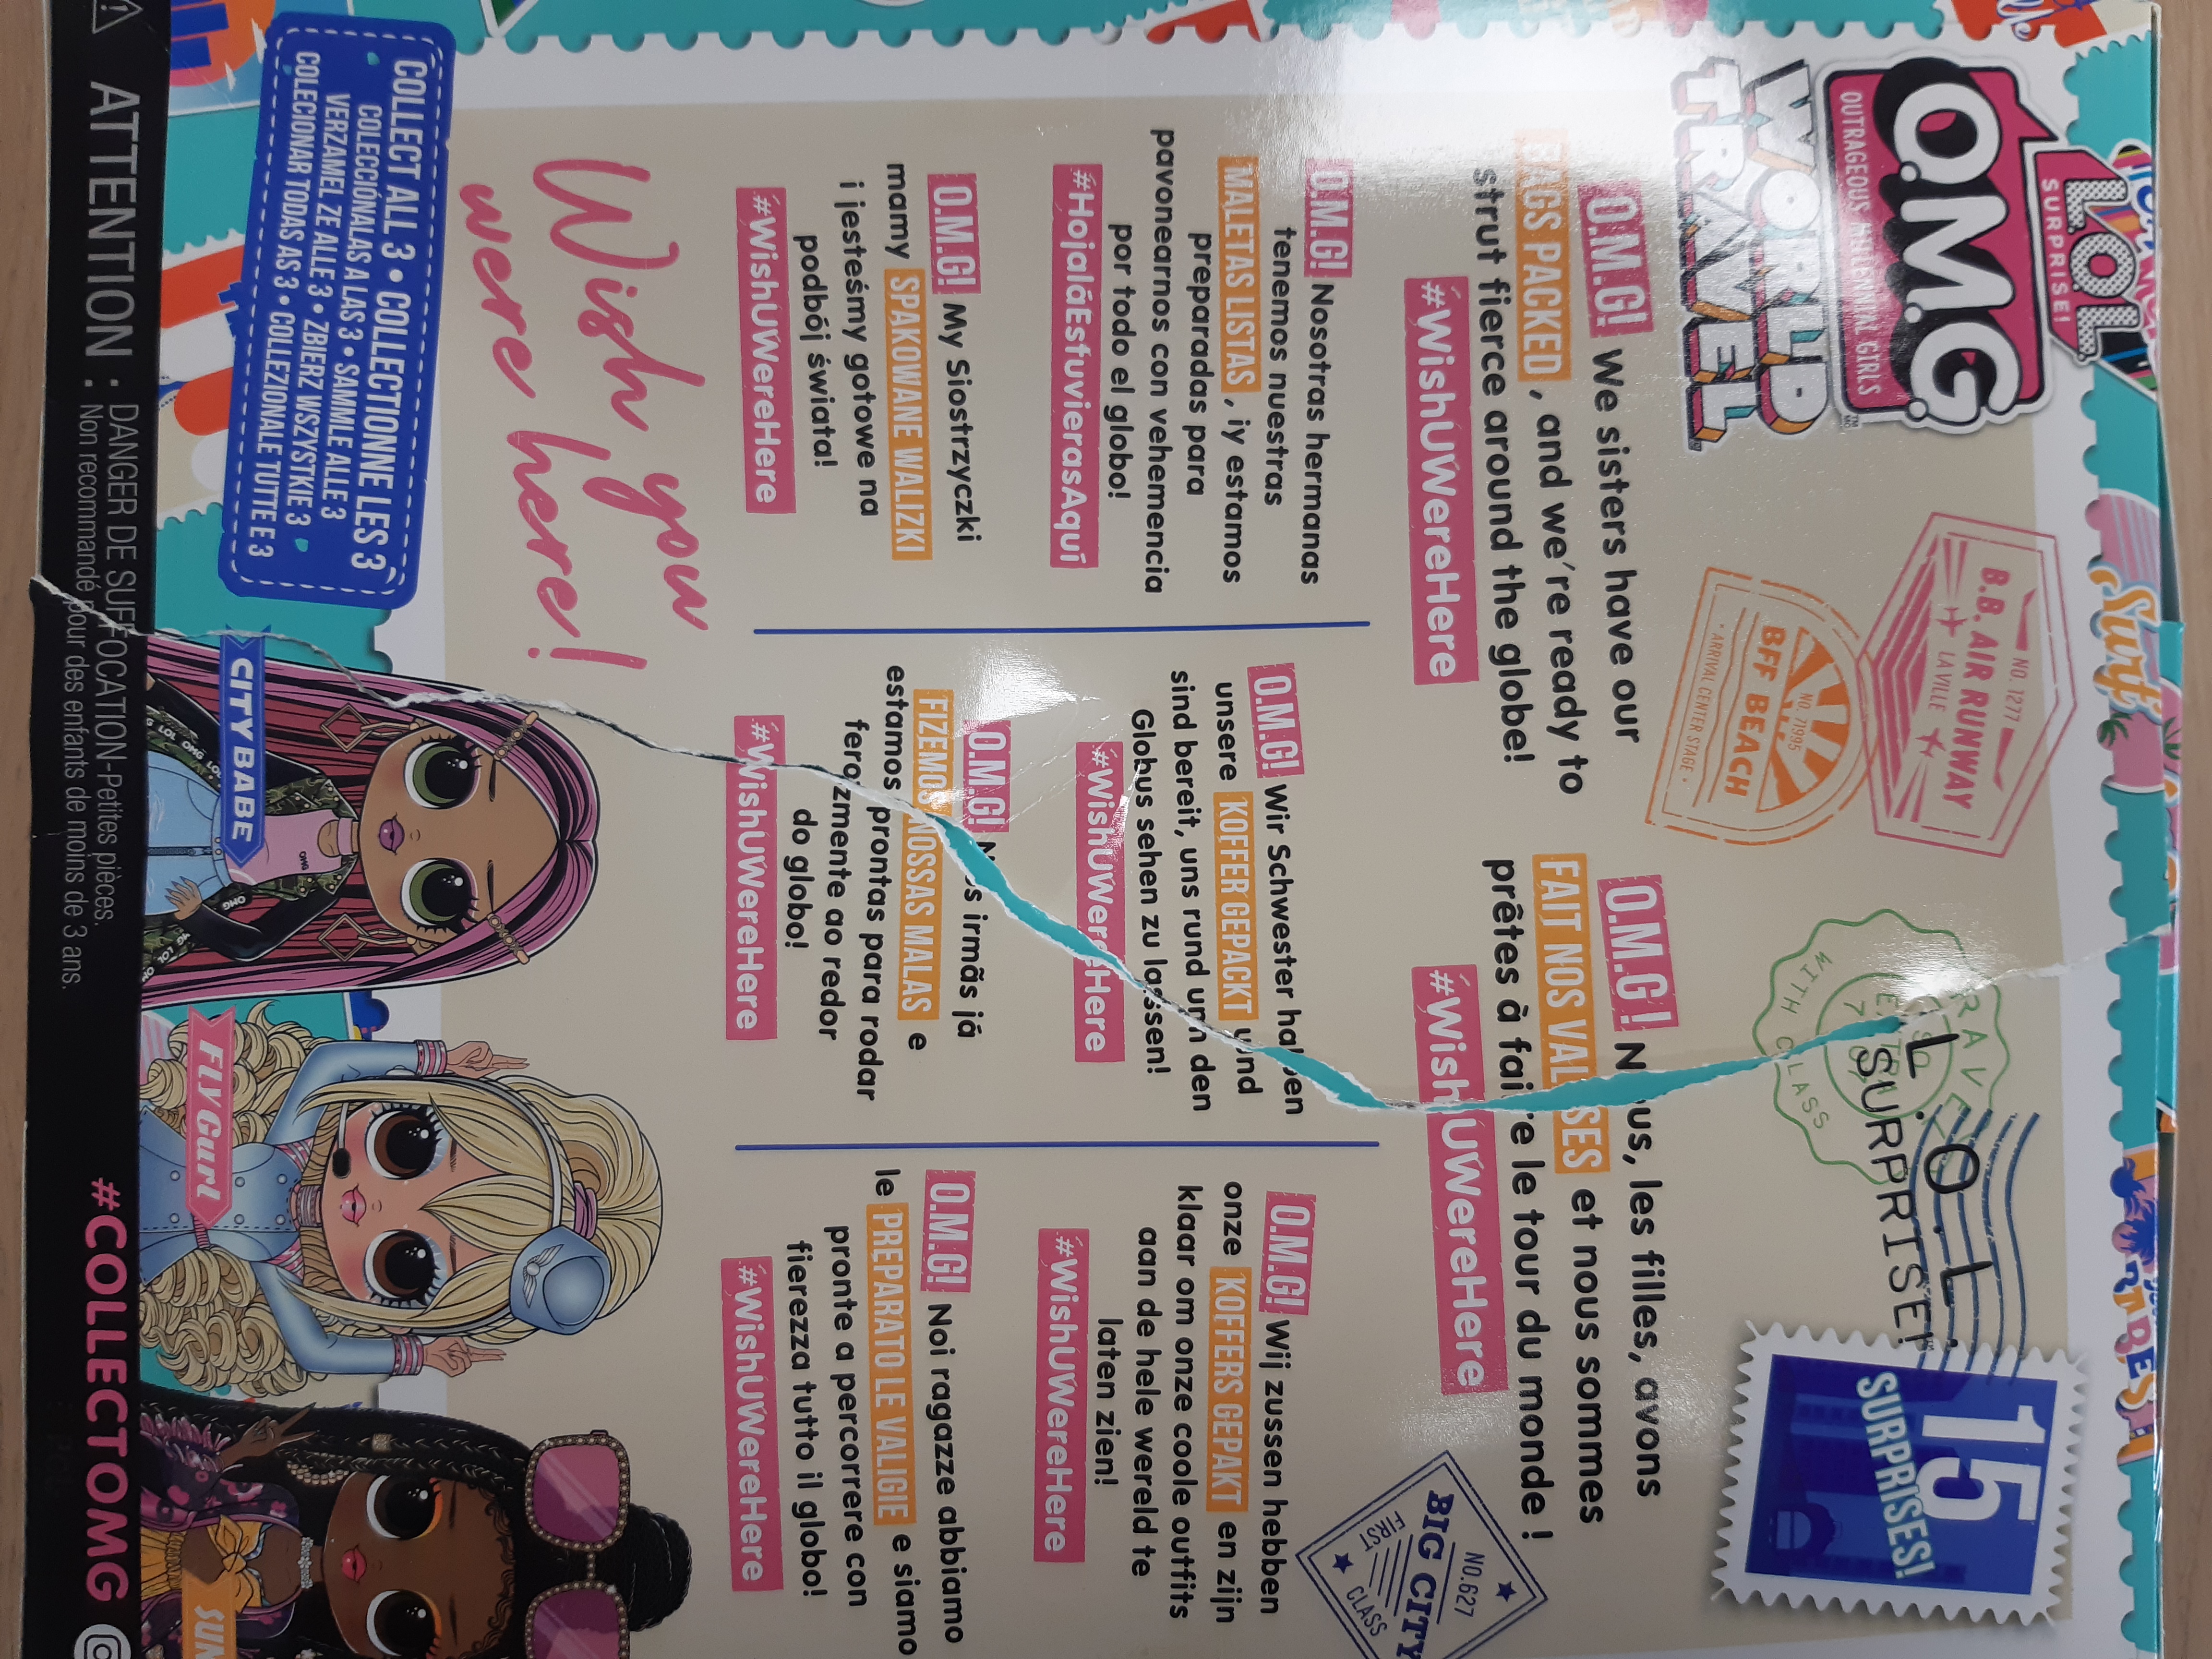 L.O.L.
SURPRISE!
O.M.G.
OUTRAGEOUS MILLENNIAL GIRLS
WORLD
TRAVEL
Surf
NO. 1277
B.B. AIR RUNWAY
LA VILLE
NO. 71995
BFF BEACH
• ARRIVAL CENTER STAGE •
WITH CLASS
L.O.L.
SURPRISE!
15
SURPRISES!
O.M.G! We sisters have our
BAGS PACKED , and we're ready to
strut fierce around the globe!
#WishUWereHere
O.M.G ! Nous, les filles, avons
FAIT NOS VALISES et nous sommes
prêtes à faire le tour du monde !
#WishUWereHere
NO.627
BIG CITY
FIRST CLASS
O.M.G! Nosotras hermanas
tenemos nuestras
MALETAS LISTAS , ¡y estamos
preparadas para
pavonearnos con vehemencia
por todo el globo!
#HojaláEstuvierasAquí
O.M.G! Wir Schwester haben
unsere KOFFER GEPACKT und
sind bereit, uns rund um den
Globus sehen zu lassen!
#WishUWereHere
O.M.G! Wij zussen hebben
onze KOFFERS GEPAKT en zijn
klaar om onze coole outfits
aan de hele wereld te
laten zien!
#WishUWereHere
O.M.G! My Siostrzyczki
mamy SPAKOWANE WALIZKI
i jesteśmy gotowe na
podbój świata!
#WishUWereHere
O.M.G! Nós irmãs já
FIZEMOS NOSSAS MALAS e
estamos prontas para rodar
ferozmente ao redor
do globo!
#WishUWereHere
O.M.G! Noi ragazze abbiamo
le PREPARATO LE VALIGIE e siamo
pronte a percorrere con
fierezza tutto il globo!
#WishUWereHere
Wish you
were here!
COLLECT ALL 3 • COLLECTIONNE LES 3
COLECCIÓNALAS A LAS 3 • SAMMLE ALLE 3
VERZAMEL ZE ALLE 3 • ZBIERZ WSZYSTKIE 3
COLECIONAR TODAS AS 3 • COLLEZIONALE TUTTE E 3
CITY BABE
Fly Gurl
SUN
ATTENTION : DANGER DE SUFFOCATION-Petites pièces.
Non recommandé pour des enfants de moins de 3 ans.
#COLLECTOMG